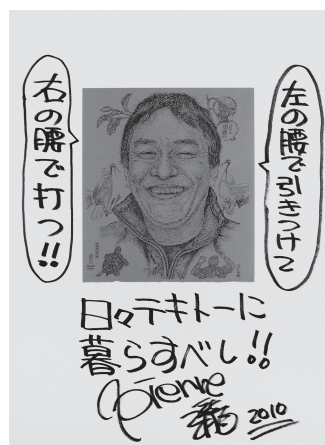 左の腰で引きつけて
右の腰で打つ!!
日々テキトーに
暮らすべし!!
Pierre
瀧
2010